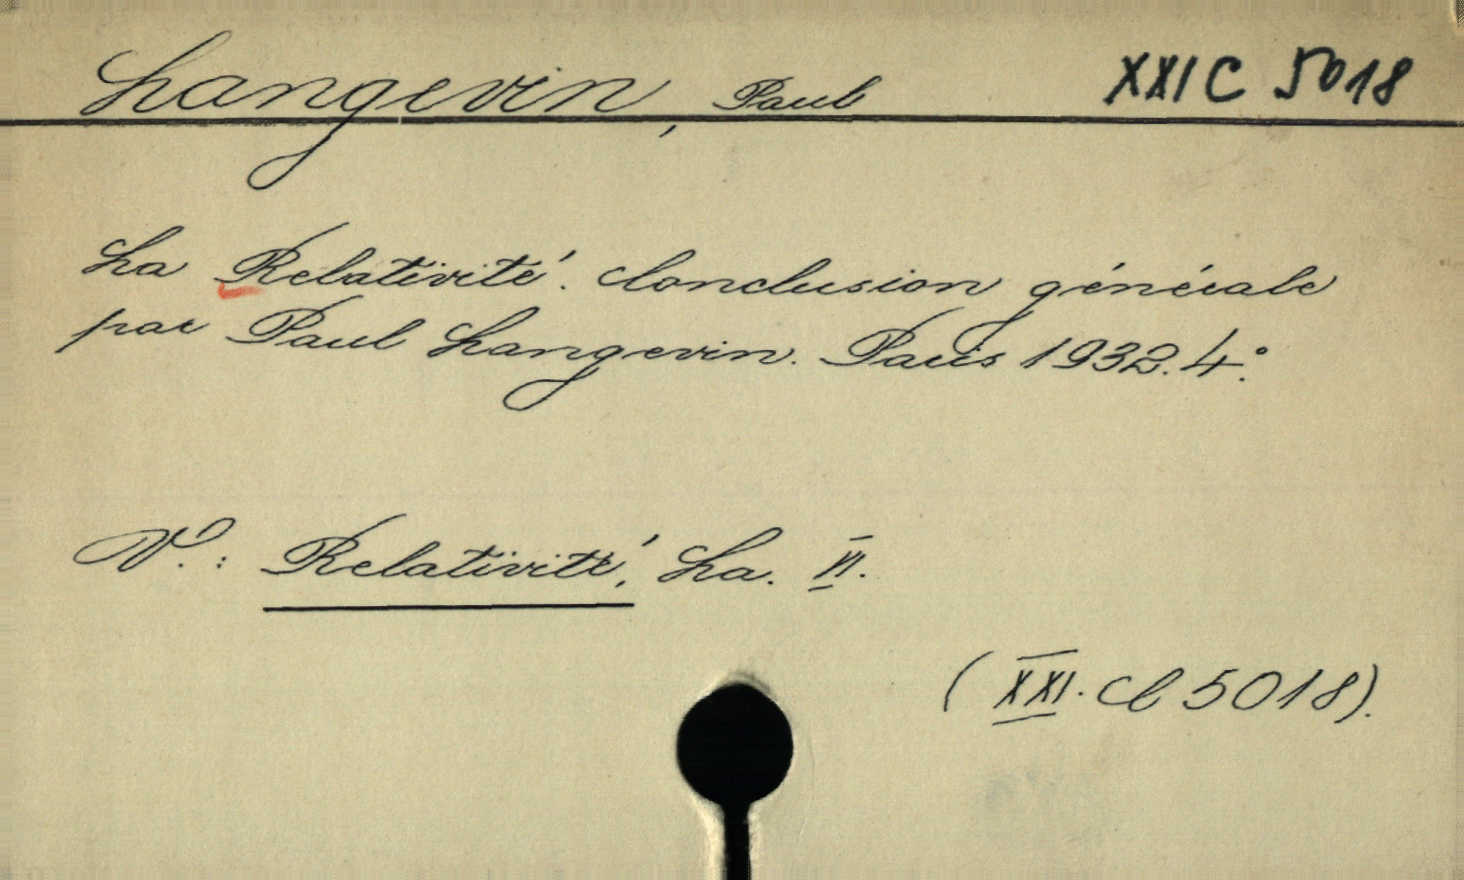 Langevin, Paul XXI C 5018
La Relativité. Conclusion générale
par Paul Langevin. Paris 1932. 4°.
V.: Relativité, La. VI.
(XXI. C 5018).